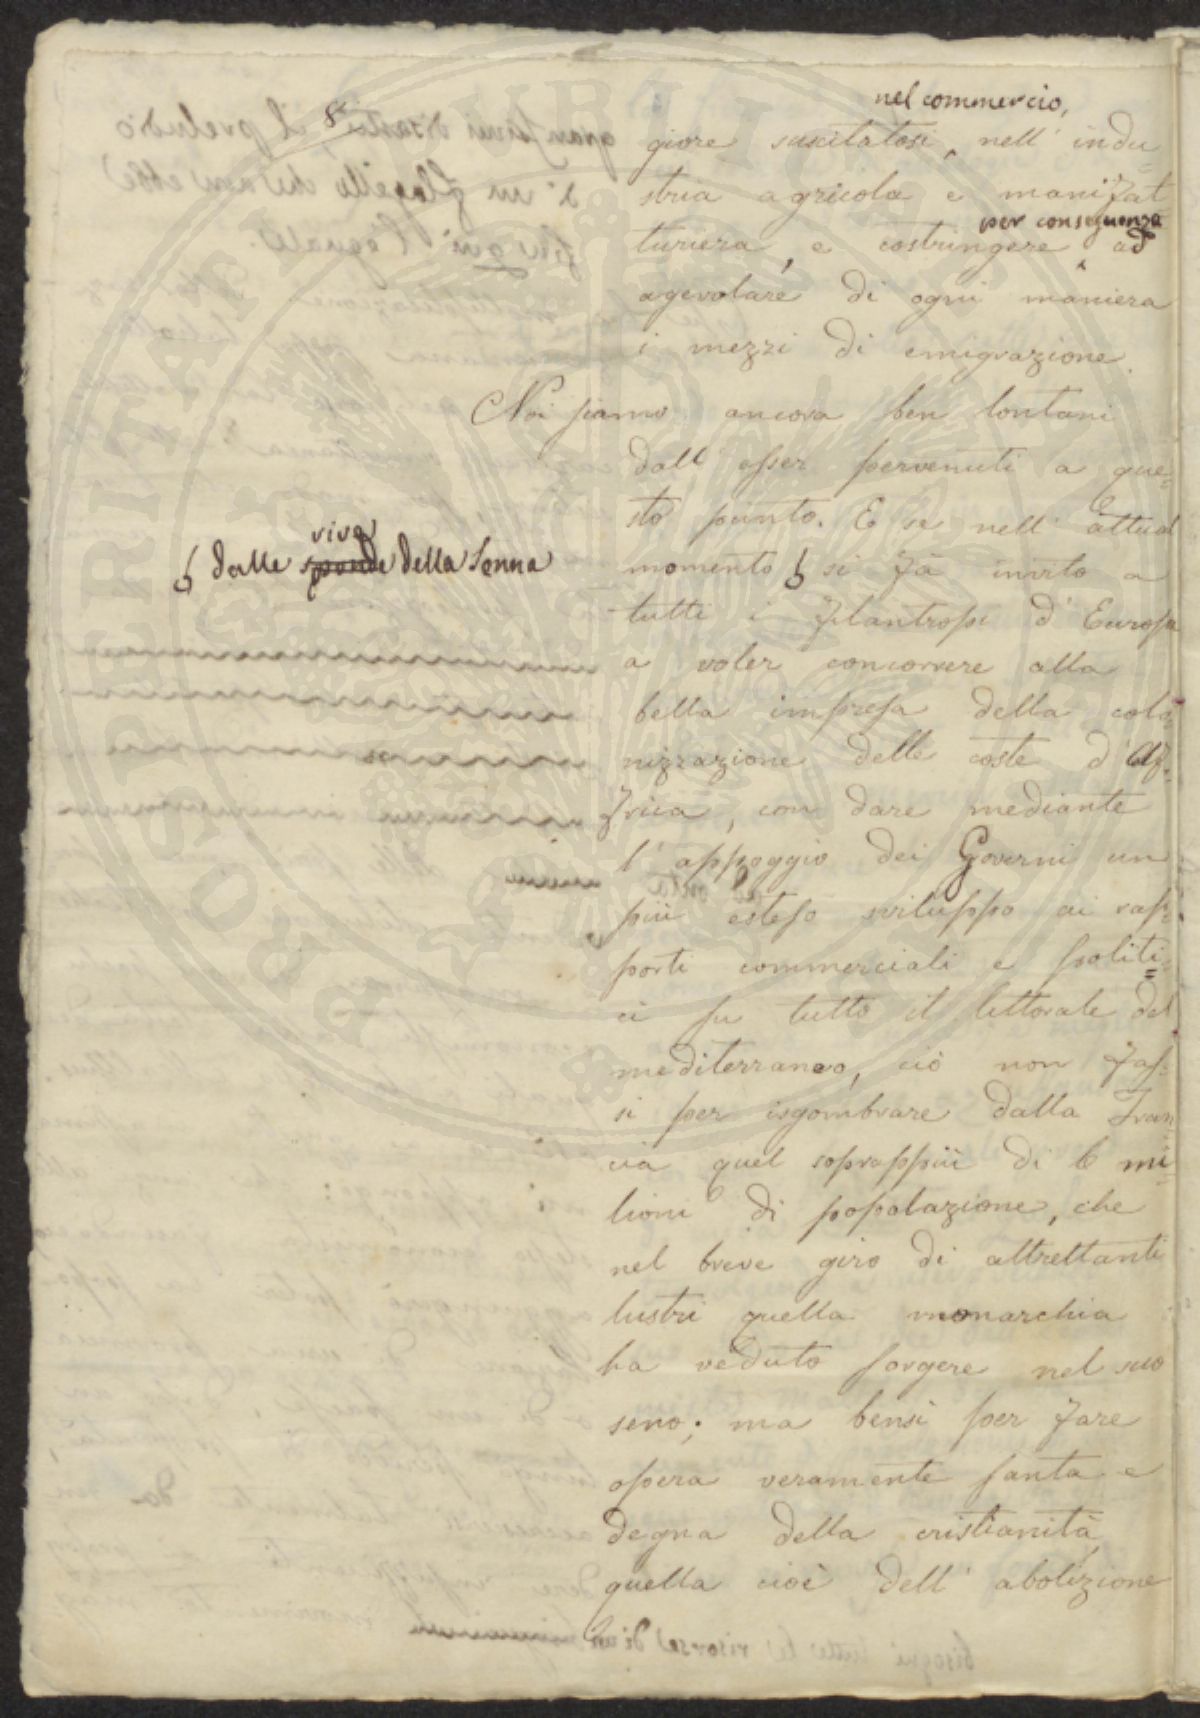 nel commercio,
giore suscitatosi nell' indu=
stria agricola e manifat
per conseguenza
turiera, e costringere ad
agevolare di ogni maniera
i mezzi di emigrazione.
Noi siamo ancora ben lontani
dall' esser pervenuti a que=
sto punto. E se nell' attual
rive
dalle sponde della Senna
momento si fà invito a
tutti i filantropi d' Europa
a voler concorrere alla
bella impresa della colo=
nizzazione delle coste d' Af=
frica, con dare mediante
l' appoggio dei Governi un
più esteso sviluppo ai rap=
porti commerciali e politi=
ci su tutto il littorale del
mediterraneo, ciò non fas=
si per isgombrare dalla Fran
cia quel soprappiù di 6 mi=
lioni di popolazione, che
nel breve giro di altrettanti
lustri quella monarchia
ha veduto sorgere nel suo
seno; ma bensì per fare
opera veramente santa e
degna della cristianità
quella cioè dell' abolizione
PROSPERITATI PUBLICAE